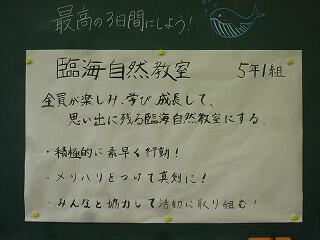 最高の3日間にしよう!
臨海自然教室 5年1組
全員が楽しみ、学び成長して、
思い出に残る臨海自然教室にする。
・積極的に素早く行動!
・メリハリをつけて真剣に!
・みんなと協力して活動に取り組む!